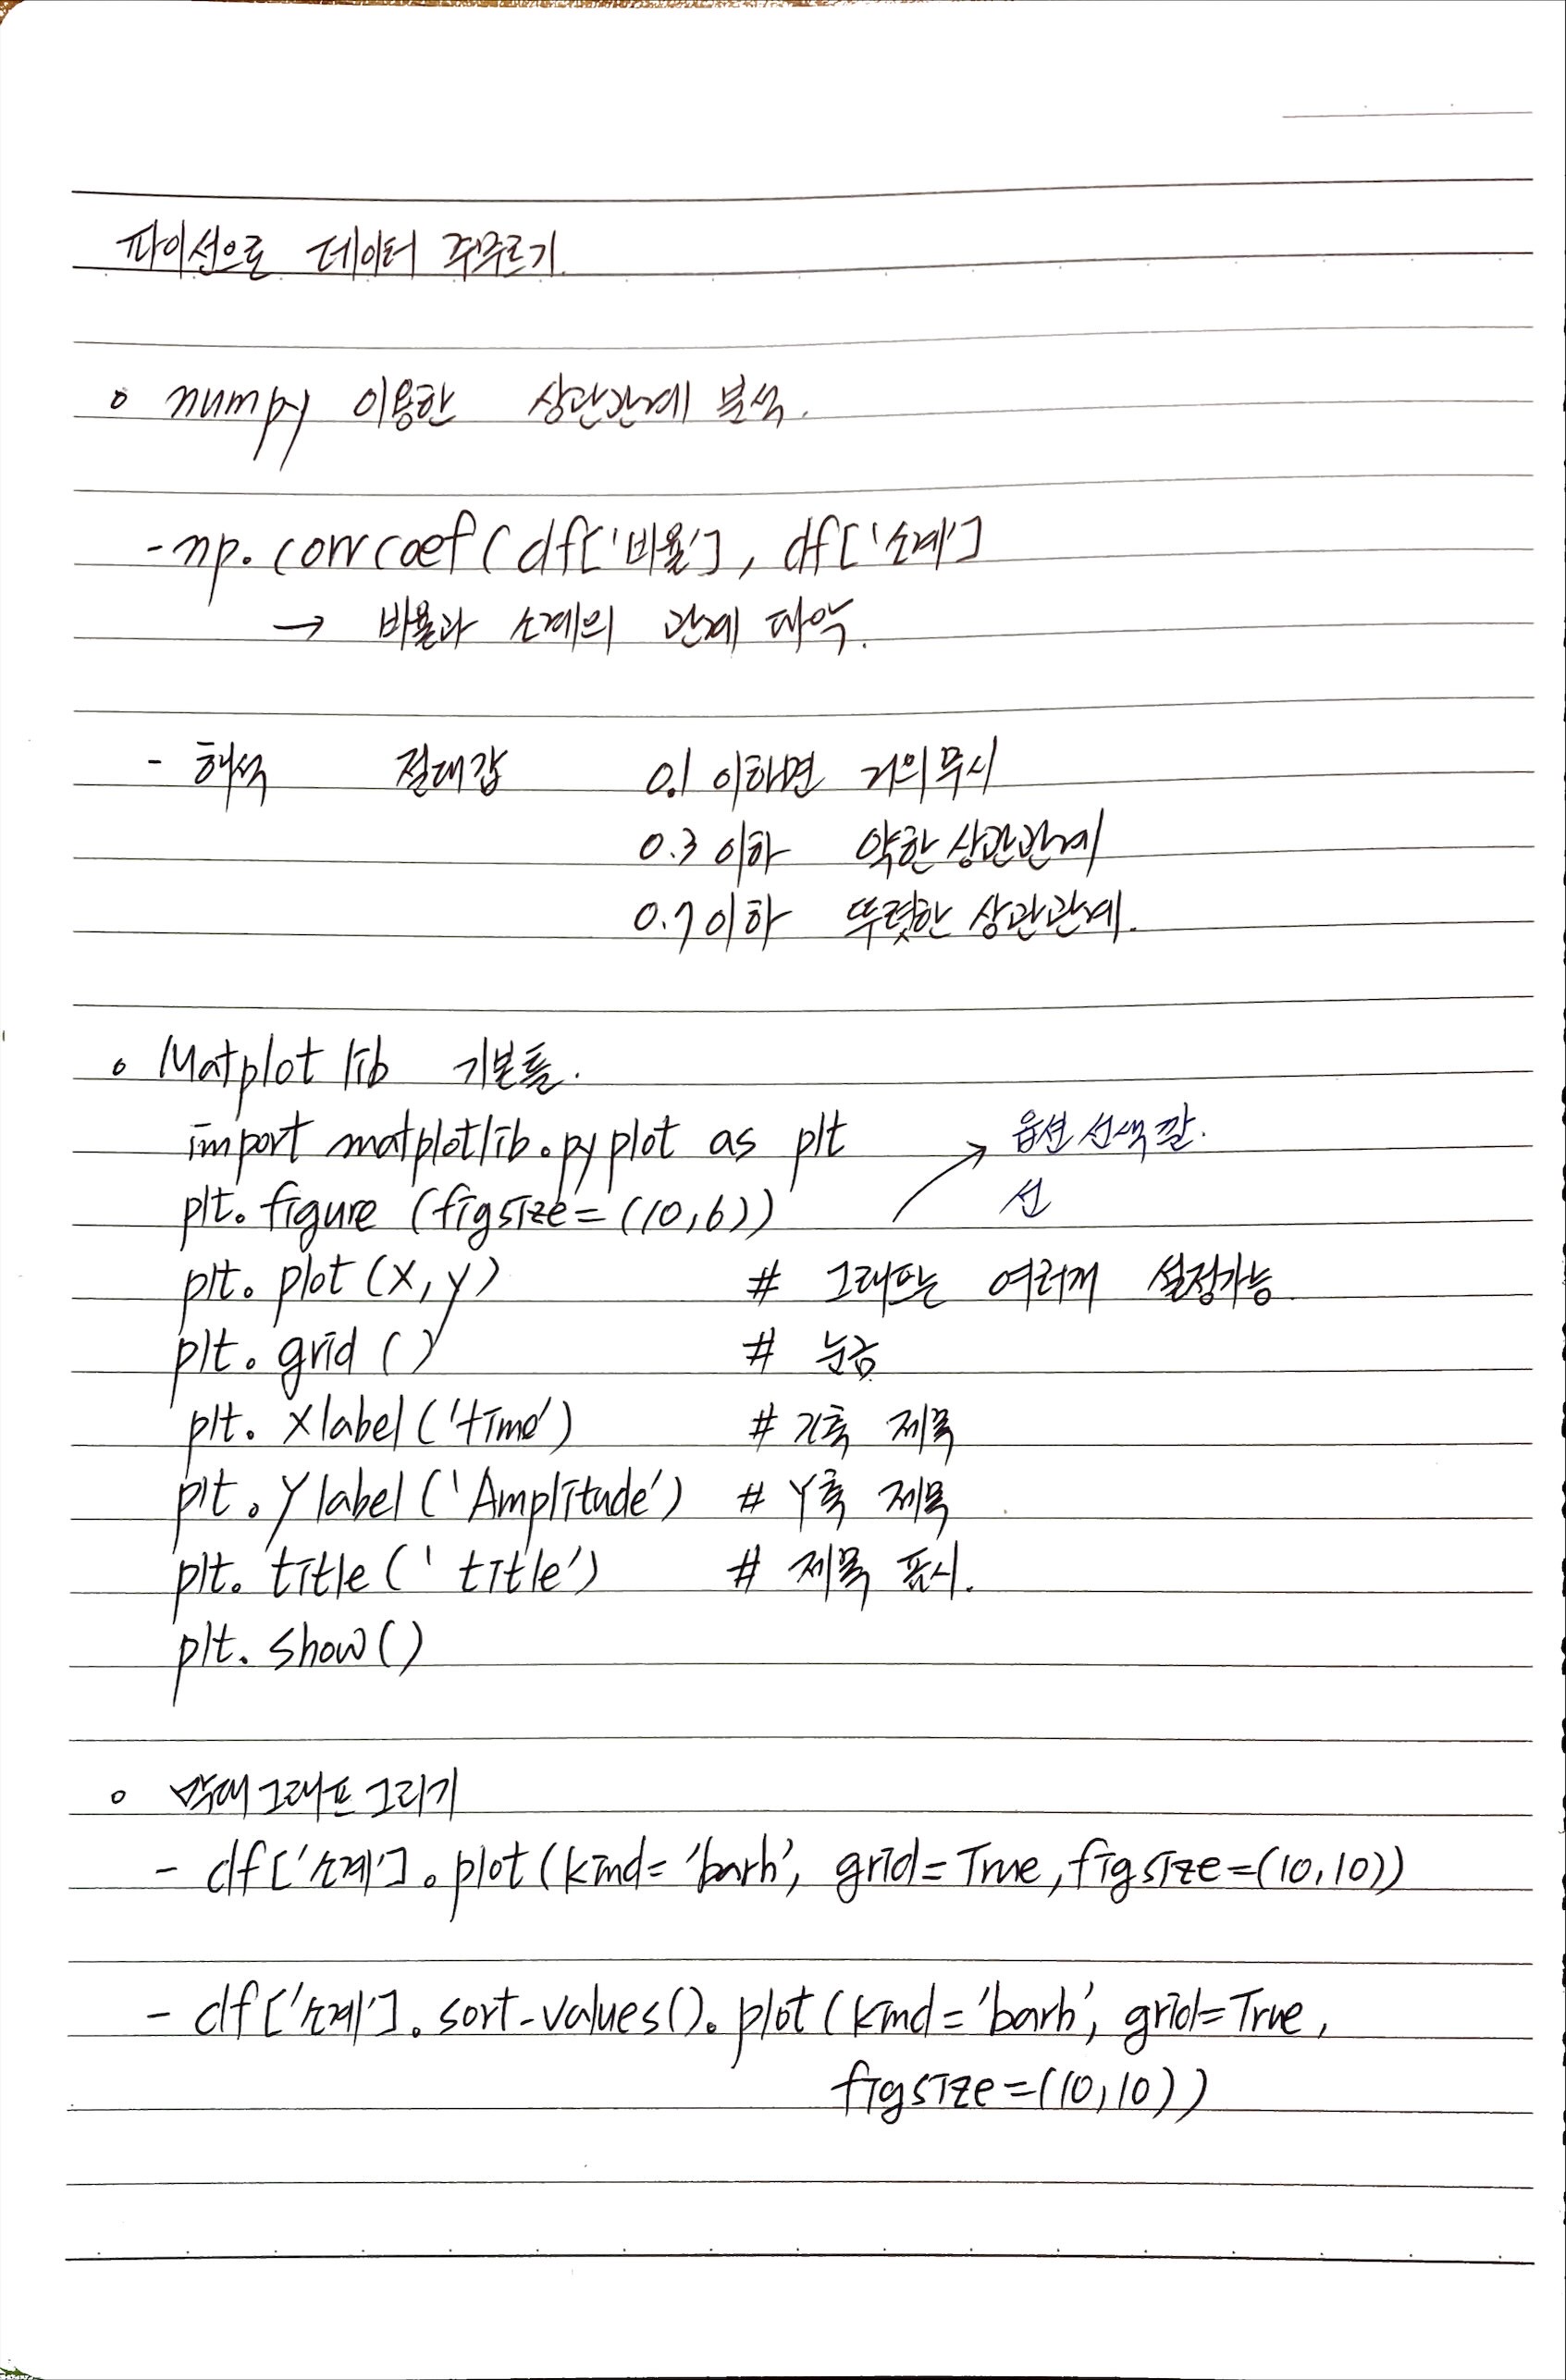 파이썬으로 데이터 주무르기.
o numpy 이용한 상관관계 분석.
- np.corrcoef(df['비율'], df['소계']
→ 비율과 소계의 관계 파악.
- 해석 절대값 0.1 이하면 거의 무시
0.3 이하 약한 상관관계
0.7 이하 뚜렷한 상관관계.
o Matplotlib 기본틀.
import matplotlib.pyplot as plt
→ 옵션 선색깔.
선
plt.figure (figsize=(10,6))
plt.plot(x,y) # 그래프는 여러개 설정가능.
plt.grid() # 눈금
plt.xlabel('time') # X축 제목
plt.Ylabel('Amplitude') # Y축 제목
plt.title('title') # 제목 표시.
plt.show()
o 막대그래프 그리기
- df['소계'].plot(kind='barh', grid=True, figsize=(10,10))
- df['소계'].sort_values().plot(kind='barh', grid=True,
figsize=(10,10))